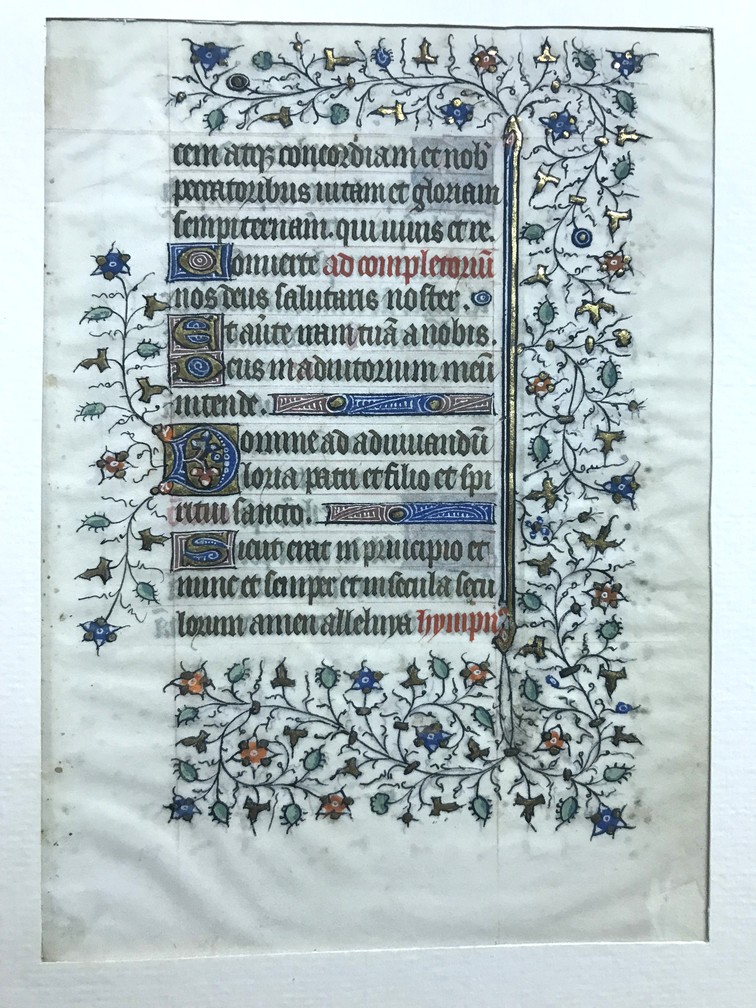 cem atq; concordiam et nob'
peccatoribus uitam et gloriam
sempiternam. qui uiuis et re.
Conuerte ad completoriū
nos deus salutaris noster.
Et auṫe iram tuā a nobis.
Deus in adiutorium meū
intende.
Domine ad adiuuandū
Gloria patri et filio et spi
ritui sancto.
Sicut erat in principio et
nunc et semper et in secula secu
lorum amen alleluya hympn'